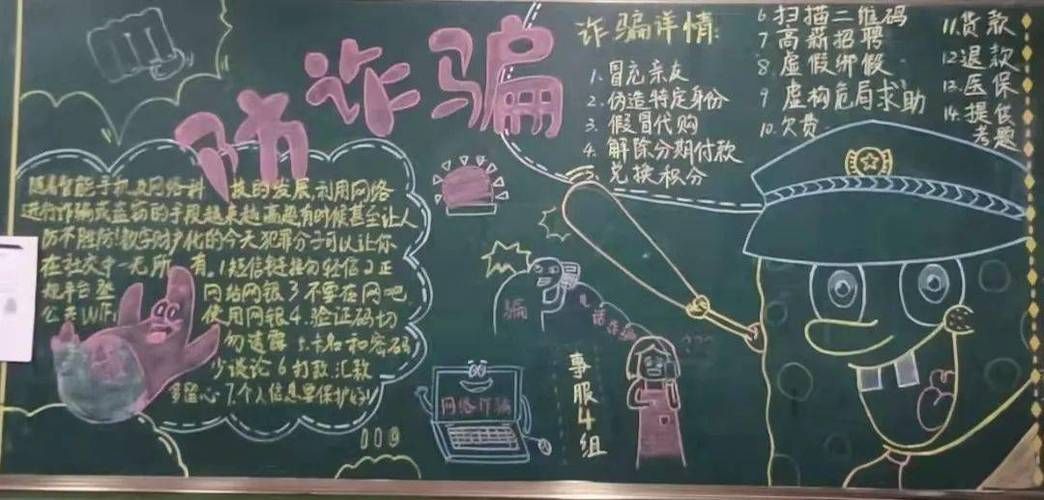 防诈骗
诈骗详情
1.冒充亲友
2.伪造特定身份
3.假冒代购
4.解除分期付款
5.兑换积分
6 扫描二维码
7 高薪招聘
8.虚假绑假
9 虚构危局求助
10.欠费
11.货款
12退款
13.医保
14.提供
考题
随着智能手机及网络科 技的发展,利用网络
进行诈骗或盗窃的手段越来越高超,有时候甚至让人
防不胜防!数字财产化的今天犯罪分子可以让你
在社交中一无所有。1短信链接勿轻信2正
规平台登 网站网银3不要在网吧
公共WiFi 使用网银4.验证码切
勿透露 5.卡和密码
少谈论6打款汇款
多留心7.个人信息要保护好!
骗
话诈骗
???
网络诈骗
事服4组
110